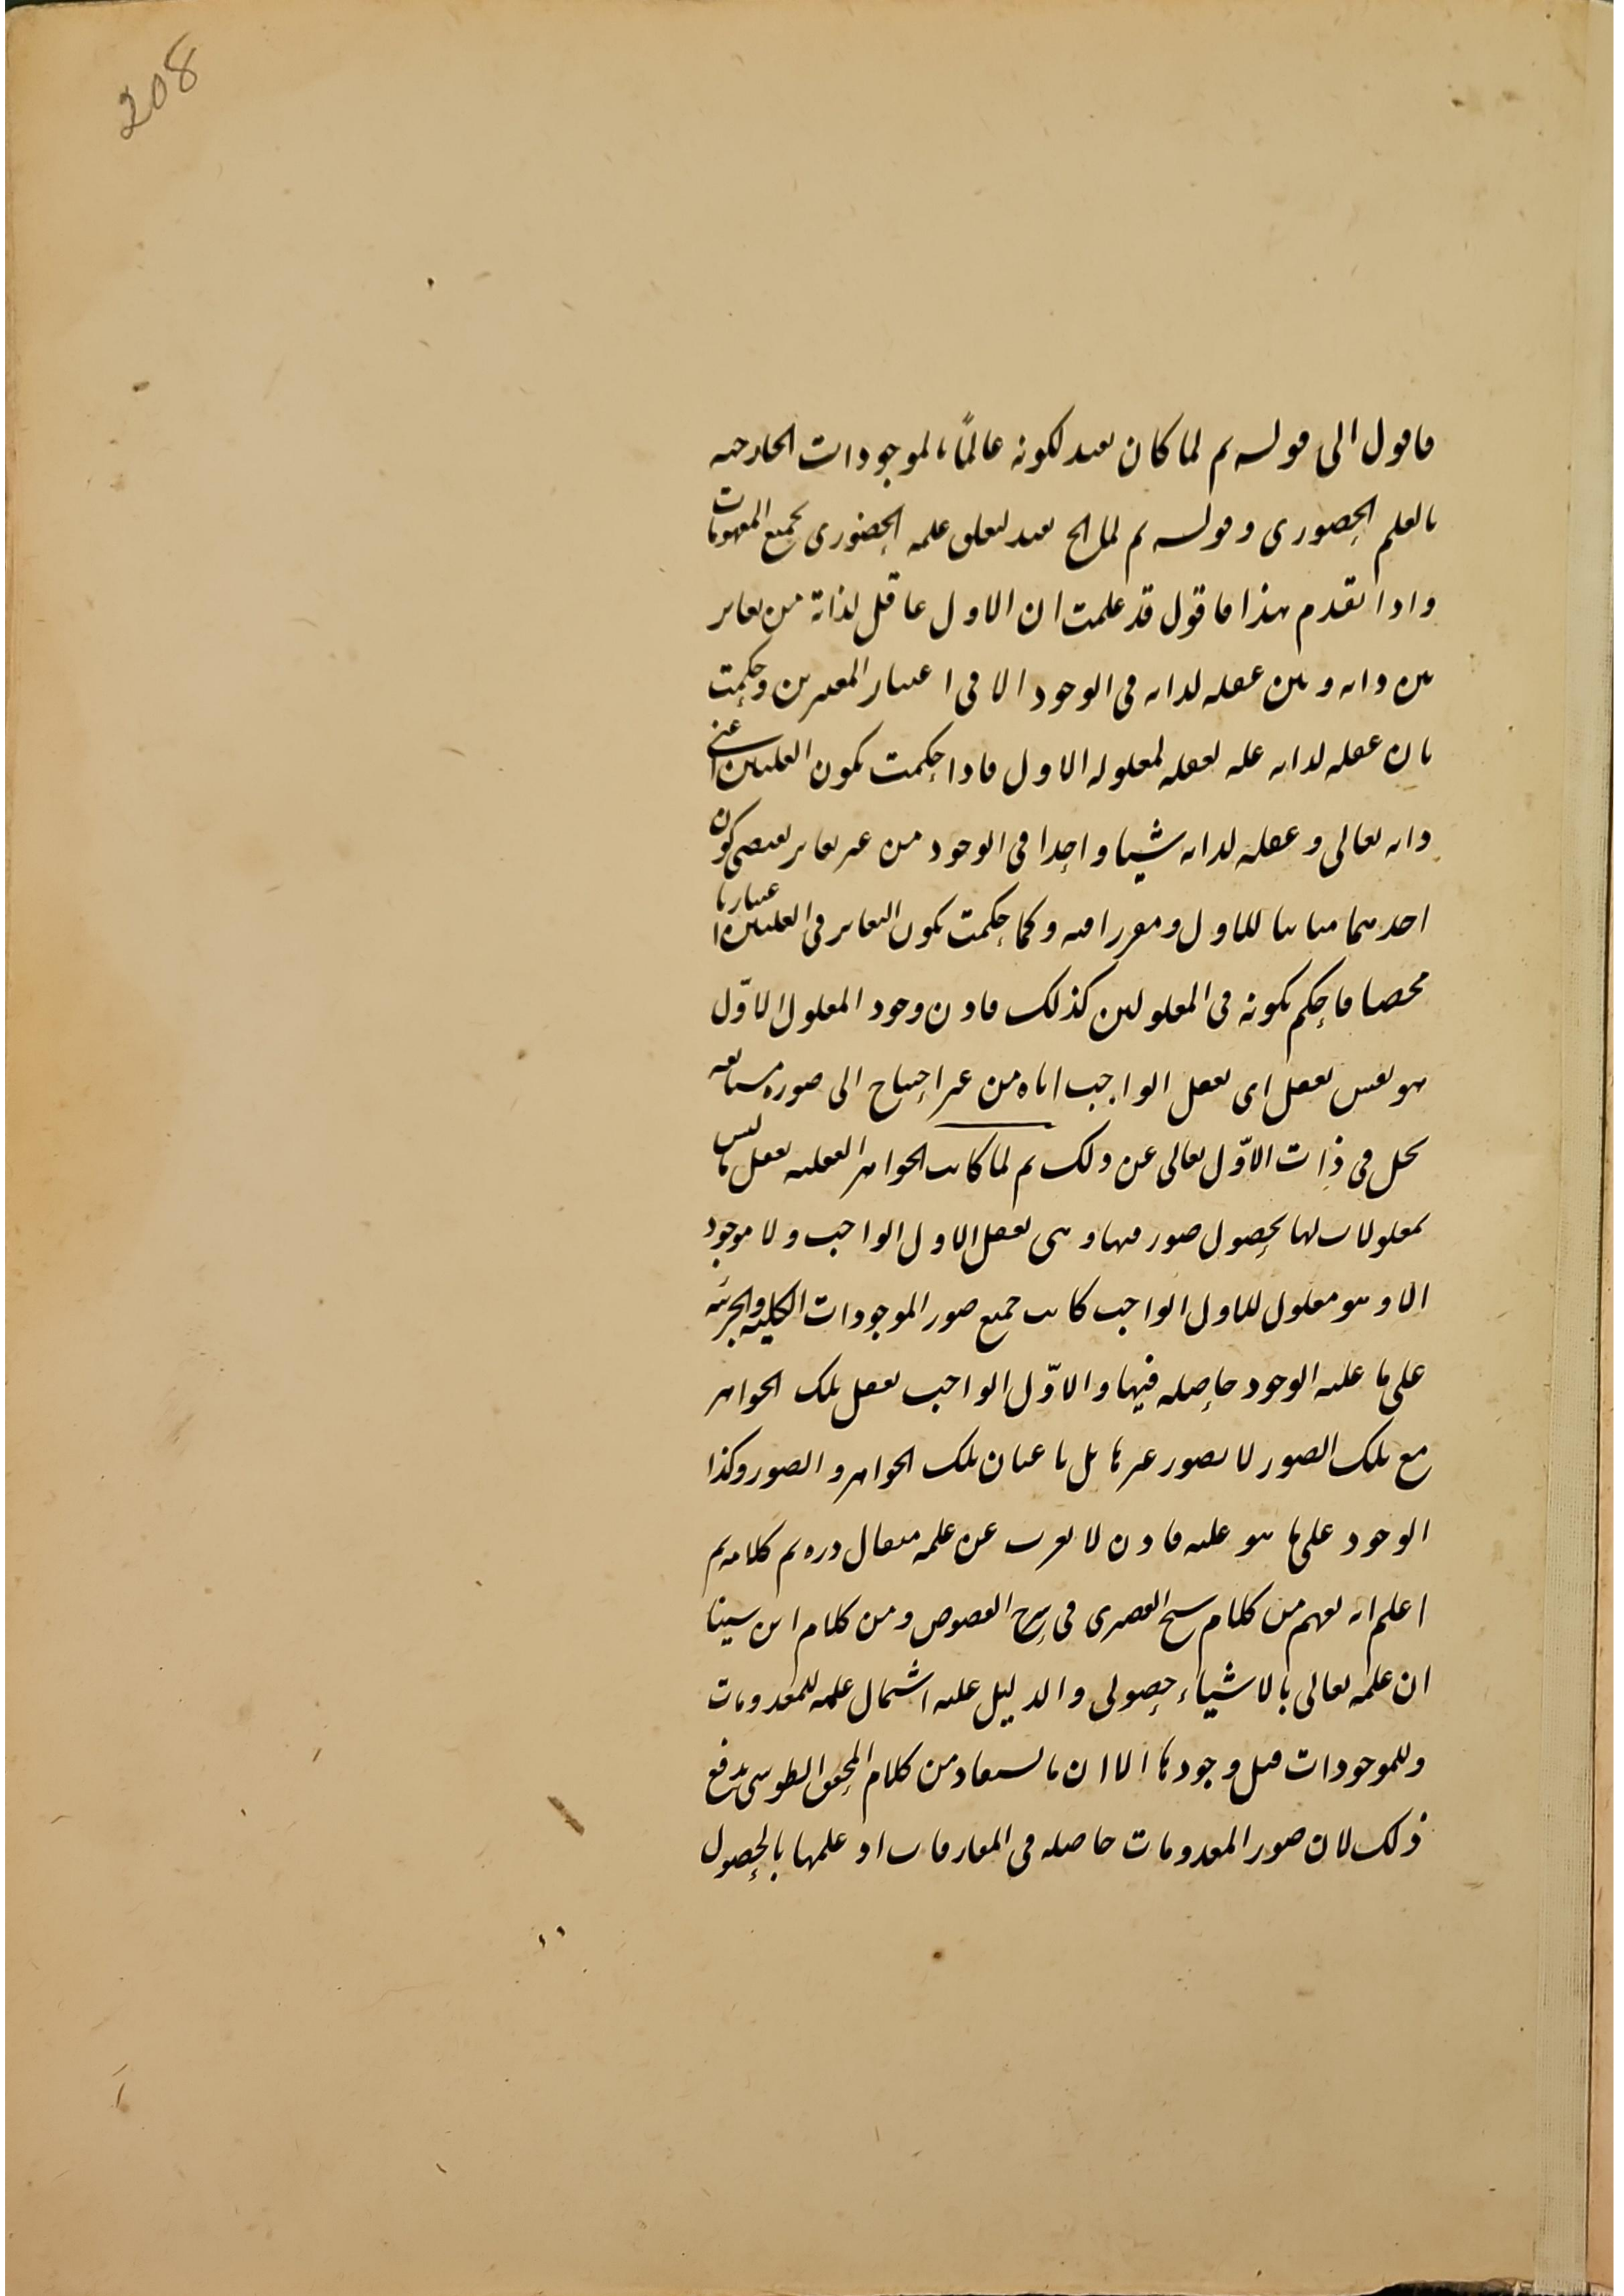 208
فاقول الى قوله ثم لما كان يفيد لكونه عالمًا بالموجودات الخارجيه
بالعلم الحصورى وقوله ثم لما الخ يفيد لتعلق علمه الحضورى بجميع المفهومات
واذا تقدم هذا فاقول قد علمت ان الاول عاقل لذاته من تغاير
بين ذاته وبين عقله لذاته فى الوجود الا فى اعتبار المعتبرين وحكمت
بان عقله لذاته علة لعقله لمعلوله الاول فاذا حكمت بكون العلتين اعنى
ذاته تعالى وعقله لذاته شيئا واحدا فى الوجود من غير تغاير يقتضى كون
احدهما مباينا للاول ومقررا فيه وكما حكمت بكون التغاير فى العلتين اعتباريا
محضا فاحكم بكونه فى المعلولين كذلك فاذن وجود المعلول الاوّل
هو نفس تعقل اى تعقل الواجب اياه من غير احتياج الى صورة مستانفه
تحل فى ذات الاوّل تعالى عن ذلك ثم لما كانت الجواهر العقليه تعقل ما ليس
بمعلولات لها بحصول صور فيها وهى تعقل الاول الواجب ولا موجود
الا وهو معلول للاول الواجب كانت جميع صور الموجودات الكليه والجزئيه
على ما عليه الوجود حاصله فيها والاوّل الواجب يعقل تلك الجواهر
مع تلك الصور لا بصور غيرها بل باعيان تلك الجواهر والصور وكذا
الوجود على ما هو عليه فاذن لا يعزب عن علمه مثقال ذره تم كلامه ثم
اعلم انه يفهم من كلام شيخ القصرى فى شرح الفصوص ومن كلام ابن سينا
ان علمه تعالى بالاشياء حصولى والدليل عليه اشتمال علمه للمعدومات
وللموجودات قبل وجودها الا ان ما يستفاد من كلام المحقق الطوسى يدفع
ذلك لان صور المعدومات حاصله فى المفارقات او علمها بالحصول